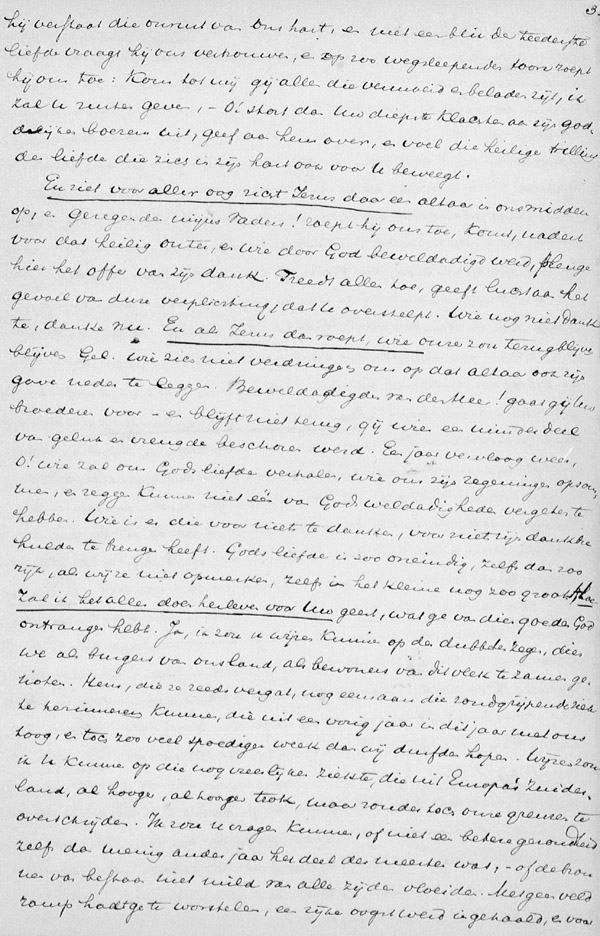 3.
hij verstaat die onrust van Ons hart, en met een blik der teederste
liefde vraagt hij ons vertrouwen, en op zoo wegslependen toon roept
hij ons toe: Kom tot mij gij allen die vermoeid en beladen zijt, ik
zal U ruste geven, - O! stort dan Uw diepste klachten aan zijn god-
delijken boezem uit, geef aan hem over, en voel die heilige trilling
der liefde die zich in zijn hart ook voor U beweegt.
En ziet voor aller oog richt Jezus daar een altaar in ons midden
op, en Gezegenden mijns Vaders! roept hij ons toe, Komt, nadert
voor dat heilig outer, en wie door God beweldadigd werd, plenge
hier het offer van zijn dank. Treedt allen toe, geeft lucht aan het
gevoel van dure verplichting, dat U overstelpt. Wie nog niet dank-
te, danke nu. En als Jezus dan roept, wie onzer zou terug blijven
blijven Gel. wie zich niet verdringen om op dat altaar ook zijn
gave neder te leggen. Beweldadigden van den Heer! gaat gij Uw
broederen voor - en blijft niet terug, gij wien een minder deel
van geluk en vreugde beschoren werd. Een jaar vervloog weer,
O! wie zal ons Gods liefde verhalen, wie ons zijn zegeningen opsom-
men, en zeggen Kunnen niet één van Gods weldadigheden vergeten te
hebben. Wie is er die voor niets te danken, voor niets zijn dankbre
hulde te brengen heeft. Gods liefde is zoo oneindig, zelfs dan zoo
rijk, als wij ze niet opmerken, zelfs in het kleine nog zoo groot.
Zal ik het alles doen herleven voor Uw geest, wat ge van dien goeden God
ontvangen hebt. Ja, ik zou U wijzen Kunnen op den dubbelen zegen, dien
we als burgers van ons land, als bewoners van dit vlek te zamen ge-
noten. Hem, die ze reeds vergat, nog eens aan die rondgrijpende ziek-
te herinneren Kunnen, die uit een vorig jaar in dit jaar met ons
toog, en toch zoo veel spoediger week dan wij durfden hopen. Wijzen zou
ik U Kunnen op die nog vreeslijker ziekte, die uit Europa's Zuider-
land, al hooger, al hooger trok, maar zonder toch onze grenzen te
overschrijden. Ik zou U vragen Kunnen, of niet een betere gezondheid
zelfs dan menig ander jaar het deel der meesten was, - of de bron-
nen van bestaan niet mild van alle zijden vloeiden. Met geen veld
ramp hadt ge te worstelen, een rijke oogst werd ingehaald, en voor